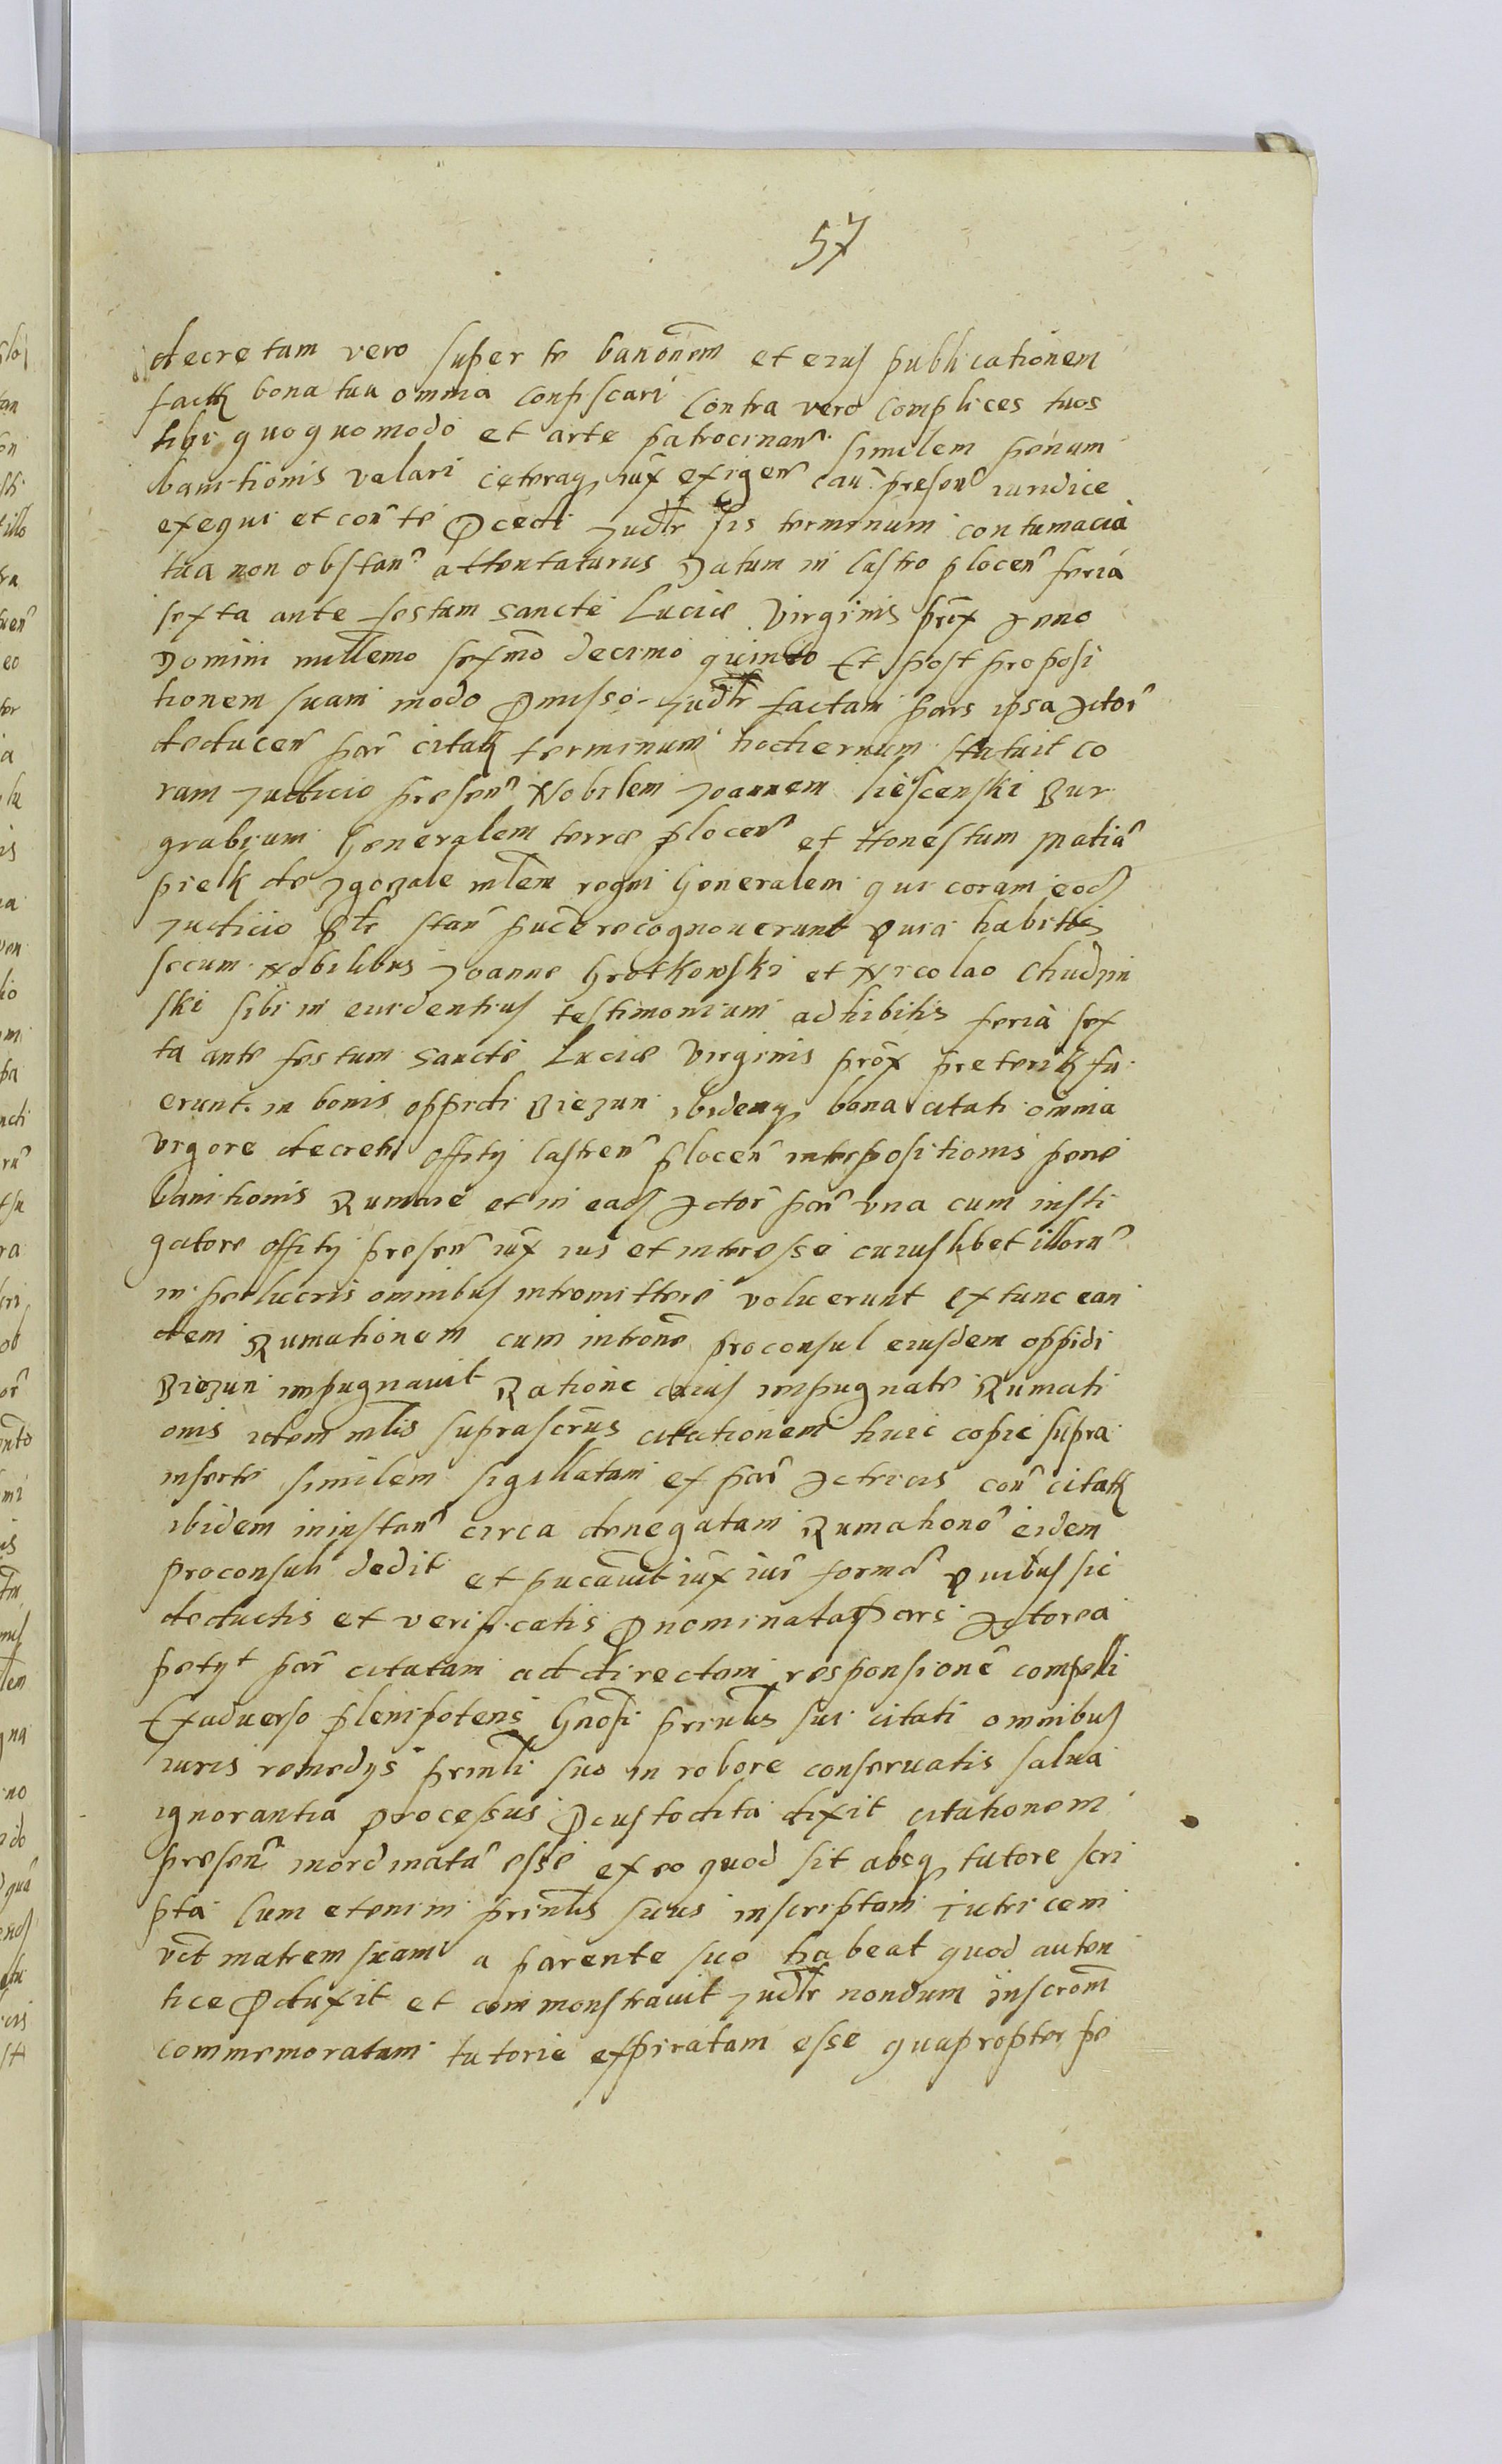 57
decretam vero super te banõnem et eius publicationem
fact bona tua omnia confiscari Contra vero complices tuos
tibi quoquomodo et arte patrocinan similem penam
banitionis valari ceteraq iux exigen cau presen iuridice
exequi et con te Pcedi Judlr sis terminum contumacia
tua non obstan attentaturus Datum in Castro plocen feria
sexta ante festum sancte Lucie Virginis prox Anno
Domini millemo sexmo decimo quinto Et post proposi
tionem suam modo Pmisso Judlr factam pars ipsa Actor
deducen par citat terminum hodiernum statuit co
ram Judicio presen Nobilem Joannem liescenski Bur
grabium Generalem terre plocen et Honestum Matia
pielk de Zgozale mlem regni Generalem qui coram eod
Judicio plr stan puce recognouerunt quia habitis
secum Nobilibus Joanne Grotkowski et Nicolao Chudzin
ski sibi in euidentius testimonium adhibitis feria sex
ta ante festum sancte Lucie Virginis prox preterit fu
erunt in bonis oppidi Biezun ibidemq bona citati omnia
vigore decreti offity Castren plocen interpositionis pene
banitionis Rumare et in ead Actor par vna cum insti
gatore offity presen iux ius et interesse cuiuslibet illoru
in pe lucris omnibus intromittere voluerunt extunc ean
dem Rumationem cum introne proconsul eiusdem oppidi
Biezun impugnauit Ratione cuius impugnate Rumati
onis idem mlis suprascrius citationem huic copie supra
inserte similem sigillatam ex par Actricis con citat
ibidem ininstan circa denegatam Rumatione eidem
proconsuli dedit et pucauit iux iur forma quibus sic
deductis et verificatis Pnominata Pars Actorea
petyt par citatam ad directam responsione compelli
Ex aduerso plenipotens Gnosi prinlis sui citati omnibus
iuris remedys prinli suo in robore conseruatis salua
ignorantia processus Pcustodita dixit citationem
presen inordinata esse ex eo quod sit absq tutore scri
pta Cum etenim prinlis suus inscriptam tutricem
vct matrem suam a parente suo habeat quod auten
tice Pduxit et commonstrauit Judlr nondum inscrom
commemoratam tutorie expiratam esse quapropter pe